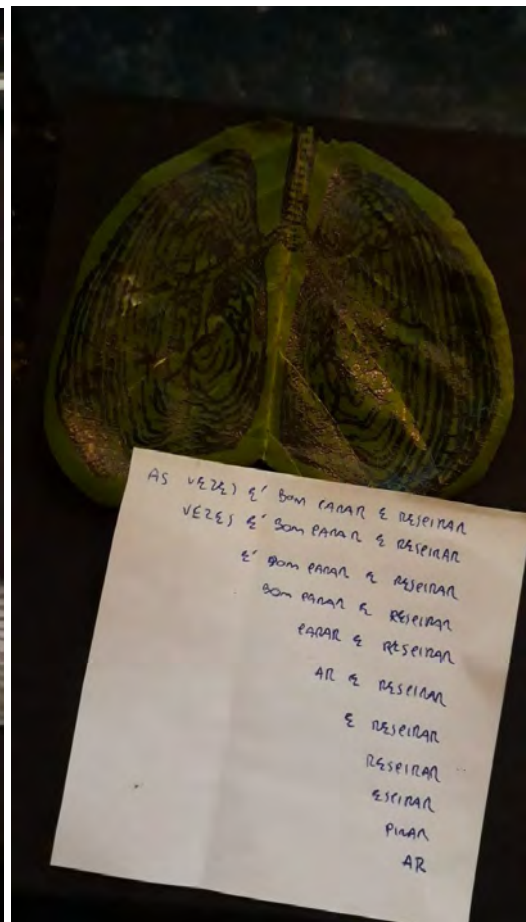 AS VEZES É BOM PARAR E RESPIRAR
VEZES É BOM PARAR E RESPIRAR
É BOM PARAR E RESPIRAR
BOM PARAR E RESPIRAR
PARAR E RESPIRAR
AR E RESPIRAR
E RESPIRAR
RESPIRAR
ESPIRAR
PIRAR
AR